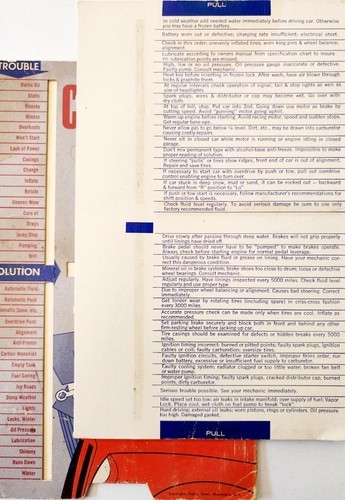 PULL
In cold weather add needed water immediately before driving car. Otherwise
you may have a frozen battery.
Battery worn out or defective; charging rate insufficient; electrical short.
Check in this order: unevenly inflated tires; worn king pins & wheel balance;
alignment.
Lubricate according to owners manual from specification chart to insure
no lubrication points are missed.
High, low or no oil pressure. Oil pressure gauge inaccurate or defective.
Faulty pump. Consult mechanic.
Heat key before inserting in frozen lock. After wash, have air blown through
locks & graphite them.
At regular intervals check operation of signal, tail & stop lights as well as
aim of headlights.
Spark plugs, wires & distributor or cap may become wet. Go over with
dry cloth.
At top of hill, stop. Put car into 2nd. Going down use motor as brake by
cutting speed. Avoid "gunning" motor going uphill.
Warm up engine before starting. Avoid racing motor, speed and sudden stops.
Get regular tune-ups.
Never allow gas to go below ¼ level. Dirt, etc., may be drawn into carburetor
causing costly repairs.
Never sit in closed car while motor is running or engine idling in closed
garage.
Don't mix permanent type with alcohol-base anti-freeze. Impossible to make
proper reading of solution.
If steering "pulls" or tires show ridges, front end of car is out of alignment.
Repair and save tires.
If necessary to start car with overdrive by push or tow, pull out overdrive
control enabling engine to turn over.
If car stuck in deep snow, mud or sand, it can be rocked out — backward
& forward from "R" position to "Lo".
If push or tow start is necessary, follow manufacturer's recommendations for
shift position & speeds.
Check fluid level regularly. To avoid serious damage be sure to use only
factory recommended fluid.
Drive slowly after passing through deep water. Brakes will not grip properly
until linings have dried off.
Brake pedal should never have to be "pumped" to make brakes operate.
Always check before starting engine for normal pedal leverage.
Usually caused by brake fluid or grease on lining. Have your mechanic cor-
rect this dangerous condition.
Mineral oil in brake system; brake shoes too close to drum; loose or defective
wheel bearings. Consult mechanic.
Adjust regularly. Have linings inspected every 5000 miles. Check fluid level
regularly and use proper type.
Due to improper wheel balancing or alignment. Causes bad steering. Correct
immediately.
Get longer wear by rotating tires (including spare) in criss-cross fashion
every 3000 miles.
Accurate pressure check can be made only when tires are cool. Inflate as
recommended.
Set parking brake securely and block both in front and behind any other
firm-resting wheel before jacking up car.
Tire casings should be examined for defects or hidden breaks every 5000
miles.
Ignition timing incorrect; burned or pitted points; faulty spark plugs, ignition
cables or coil; faulty carburetion; oversize tires.
Faulty ignition circuits, defective starter switch, improper firing order, run
down battery, excessive or insufficient fuel supply to carburetor.
Faulty cooling system; radiator clogged or too little water; broken fan belt
or water pump.
Improper ignition timing; faulty spark plugs, cracked distributor cap, burned
points, dirty carburetor.
Serious trouble possible. See your mechanic immediately.
Idle speed set too low; air leaks in intake manifold; over supply of fuel; Vapor
Lock. Place cool, wet cloth on fuel pump to break "lock".
Hard driving; external oil leaks; worn pistons, rings or cylinders. Oil pressure
too high; Damaged gasket.
PULL
TROUBLE
Burns Oil
Stalls
Knocks
Misses
Overheats
Won't Start
Lack of Power
Casings
Change
Inflate
Rotate
Uneven Wear
Care of
Drags
Jerky Stop
Pumping
Wet
SOLUTION
Automatic Fluid
Automatic Push
Overdrive-Push
Alignment
Anti-Freeze
Carbon Monoxide
Empty Tank
Fuel Saving
Icy Roads
Damp Weather
Lights
Locks, Winter
Oil Pressure
Lubrication
Shimmy
Runs Down
Winter